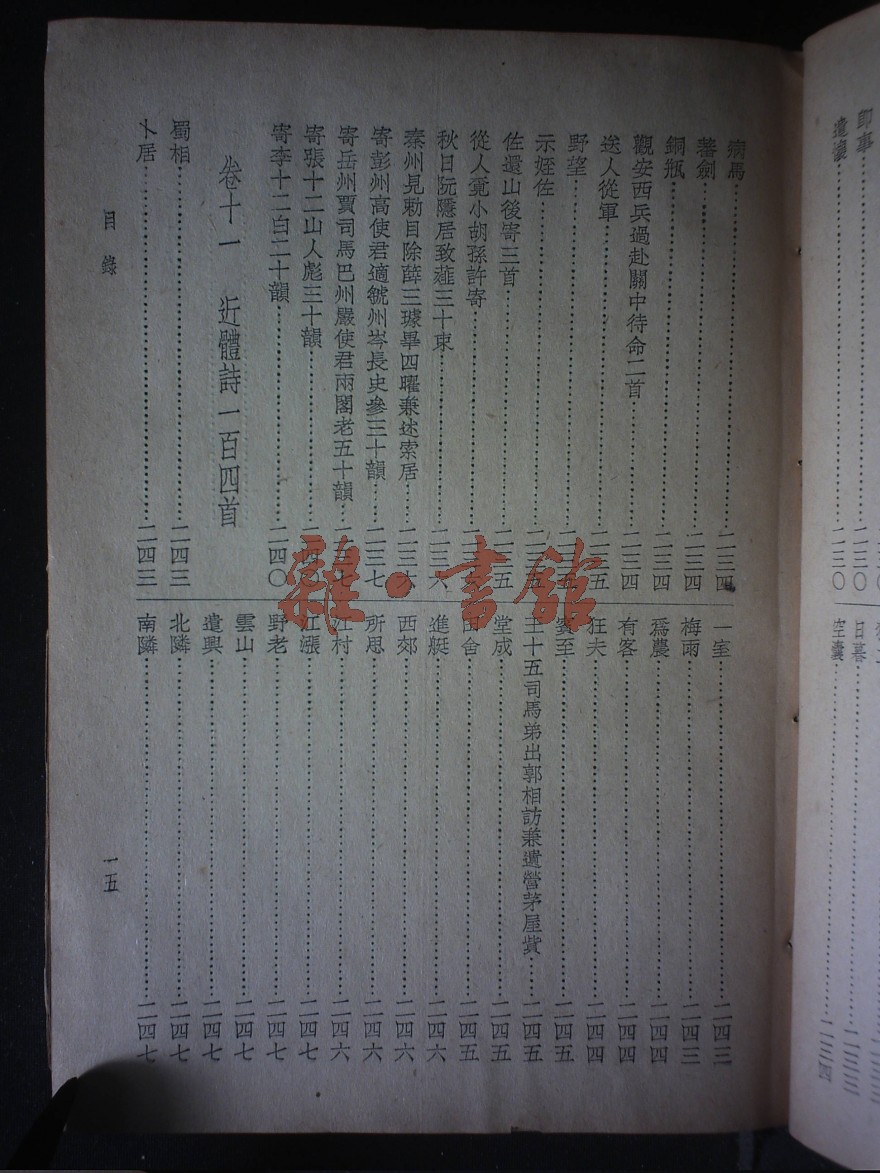 即事……二三〇
遣懷……二三〇
日暮
空囊……二三四
病馬……二三四
蕃劍……二三四
銅瓶……二三四
觀安西兵過赴關中待命二首……二三四
送人從軍……二三五
野望
示姪佐
佐還山後寄三首……二三五
從人覓小胡孫許寄
秋日阮隱居致薤三十束……二三六
秦州見勅目除薛三璩畢四曜兼述索居……二三六
寄彭州高使君適虢州岑長史參三十韻……二三七
寄岳州賈司馬巴州嚴使君兩閣老五十韻……二三七
寄張十二山人彪三十韻
寄李十二白二十韻……二四〇
卷十一 近體詩一百四首
蜀相……二四三
卜居……二四三
一室……二四三
梅雨……二四三
爲農……二四四
有客……二四四
狂夫……二四四
賓至……二四五
王十五司馬弟出郭相訪兼遺營茅屋貲……二四五
堂成……二四五
田舍……二四五
進艇……二四六
西郊……二四六
所思……二四六
江村……二四六
江漲……二四七
野老……二四七
雲山……二四七
遣興……二四七
北隣……二四七
南隣……二四七
目錄
一五
雜·書館